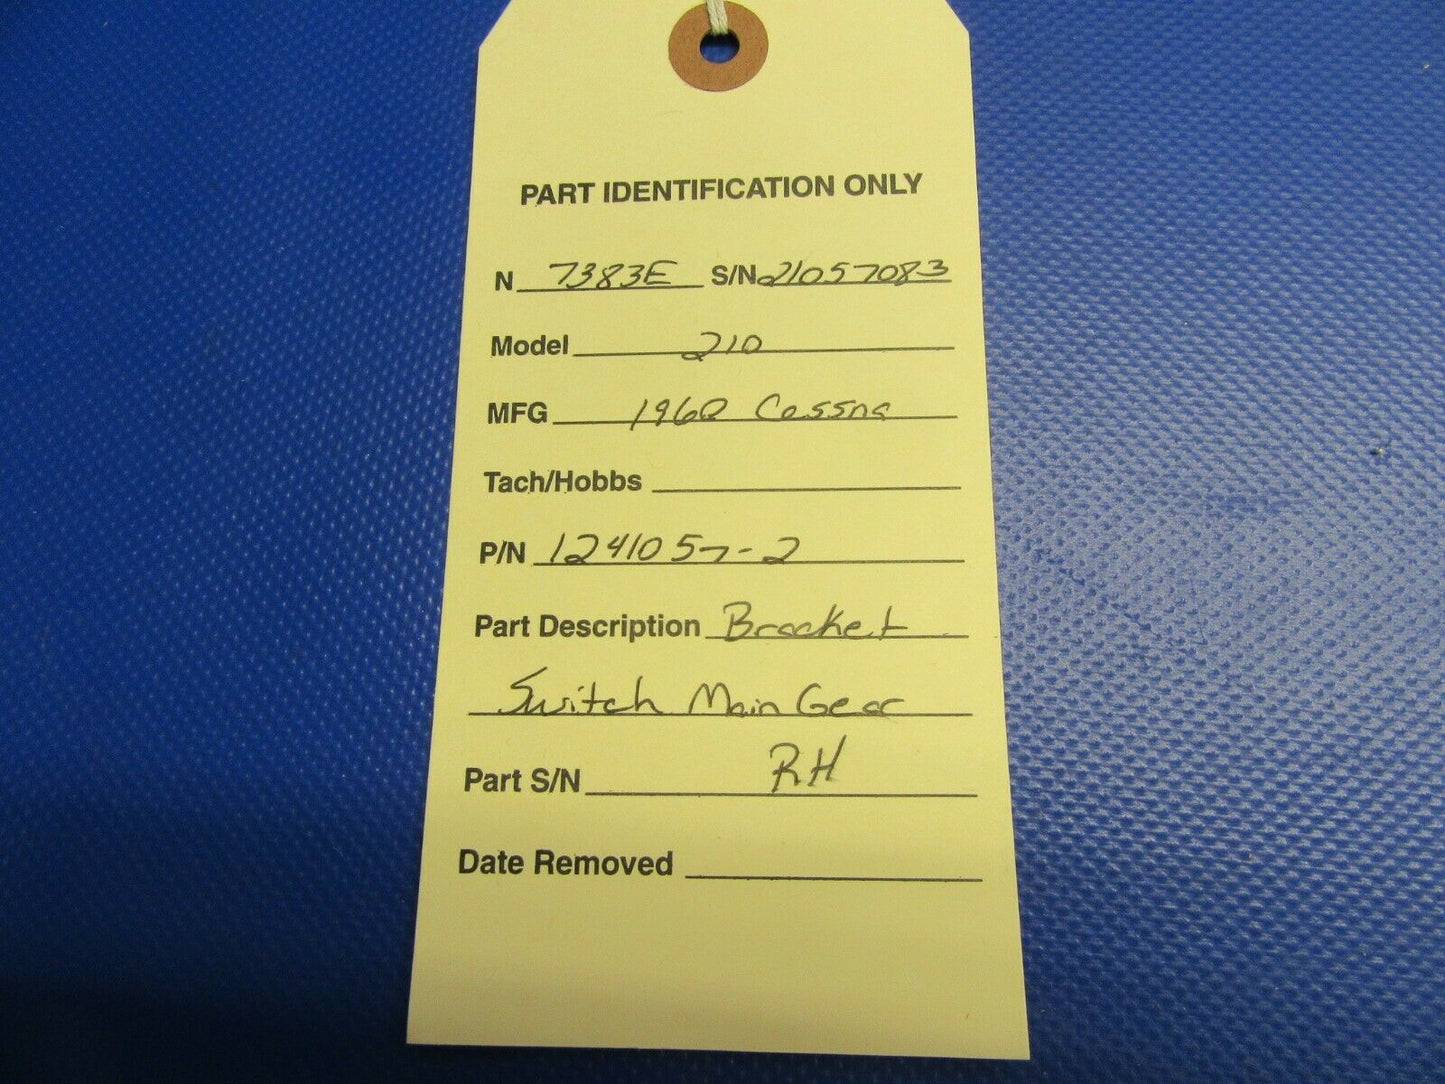 PART IDENTIFICATION ONLY
N 7383E S/N 21057083
Model 210
MFG 1960 Cessna
Tach/Hobbs
P/N 1241057-2
Part Description Bracket
Switch Main Gear
Part S/N RH
Date Removed